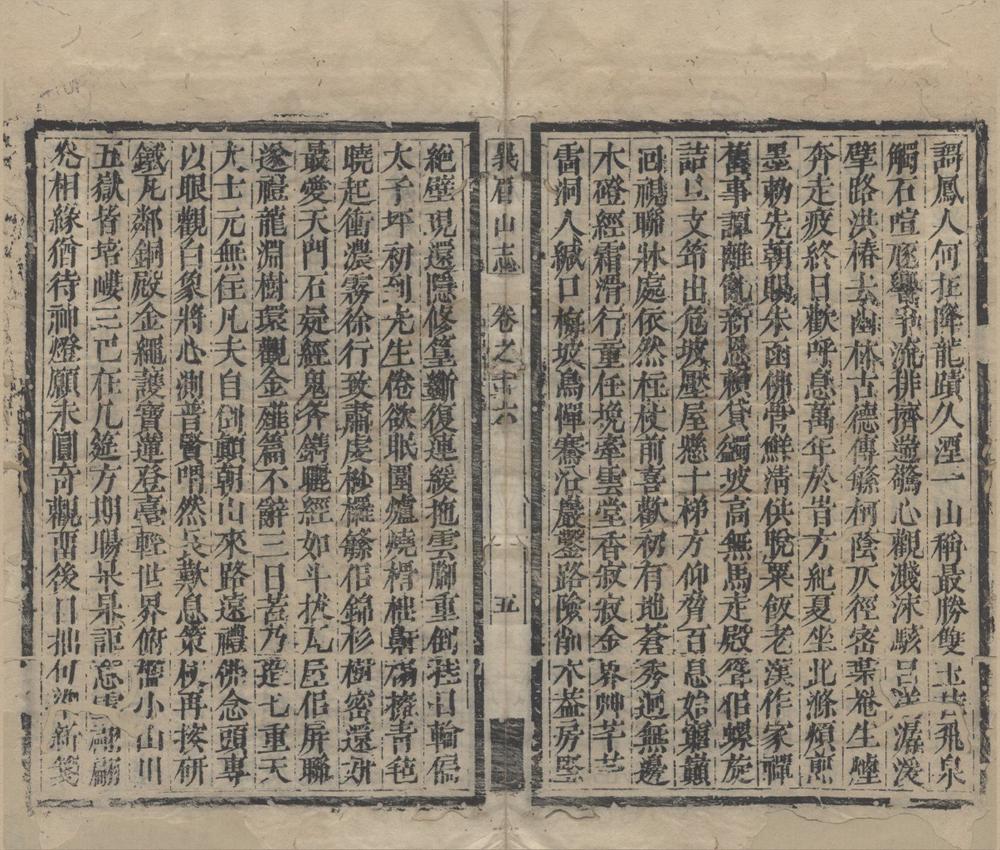 謌鳳人何在降龍蹟久湮一山稱最勝雙玉昔飛泉
觸石喧豗響爭流排擠遄驚心觀濺沫駭目潺湲
壁路洪椿去幽林古德傳繇柯陰仄徑密葉菴生煙
奔走疲終日歡呼息萬年於昔方紀夏坐此滌煩煎
墨勅先朝賜朱函佛骨鮮淸供脫粟飯老漢作家禪
舊事譚離亂新恩賴貸蠲坡高無馬走殿聳佀螺旋
詰旦支筇出危坡壓屋懸十梯方仰脅百息始窮顚
囘視聯牀處依然在杖前喜歡初有地蒼秀迥無邊
木磴經霜滑行童任挽牽雲堂香寂寂金界艸芊芊
雷洞人緘口梅坡鳥憚騫㳂巖鑿路險削木葢房堅
峩眉山志 卷之十六 五
絶壁現還隱修篁斷復連緩拖雲腳重倒挂日輪偏
太子坪初到先生倦欲眠圍爐燒榾柮鼻甕擁靑氊
曉起衝濃霧徐行致肅虔桫欏繇佀錦杉樹密還姸
最愛天門石疑經鬼斧鐫曬經如斗拔瓦臣佀屏聯
遂禮龍淵樹環觀金薤篇不辭三日苦乃造七重天
大士元無住凡夫自倒顛朝山來路遠禮佛念頭專
以眼觀白象將心測普賢喟然長歎息策杖再挨硏
鐵瓦鄰銅殿金繩護寶蓮登臺輕世界俯檻小山川
五嶽皆培塿三巴在几筵方期暘杲杲詎忘雪翩翩
炎相緣猶待神燈願未圓奇觀畱後日拙句 新箋